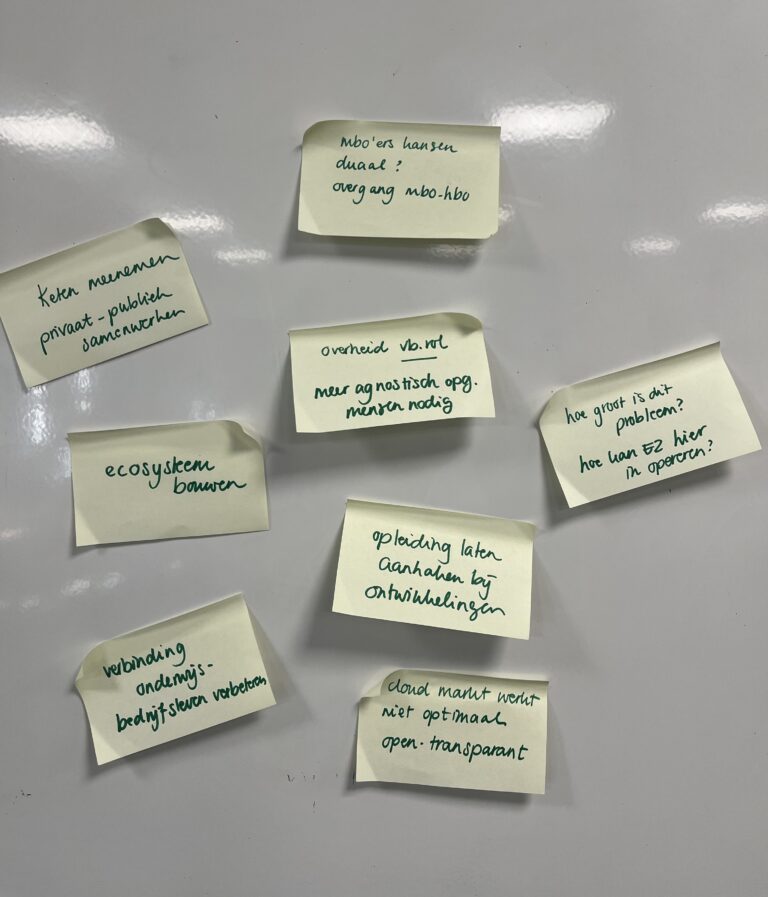 mbo'ers kansen
duaal?
overgang mbo-hbo
Keten meenemen
privaat-publiek
samenwerken
overheid vb.rol
meer agnostisch opg.
mensen nodig
hoe groot is dit
probleem?
hoe kan EZ hier
in opereren?
ecosysteem
bouwen
opleiding laten
aanhaken bij
ontwikkelingen
verbinding
onderwijs-
bedrijfsleven verbeteren
cloud markt werkt
niet optimaal
open-transparant